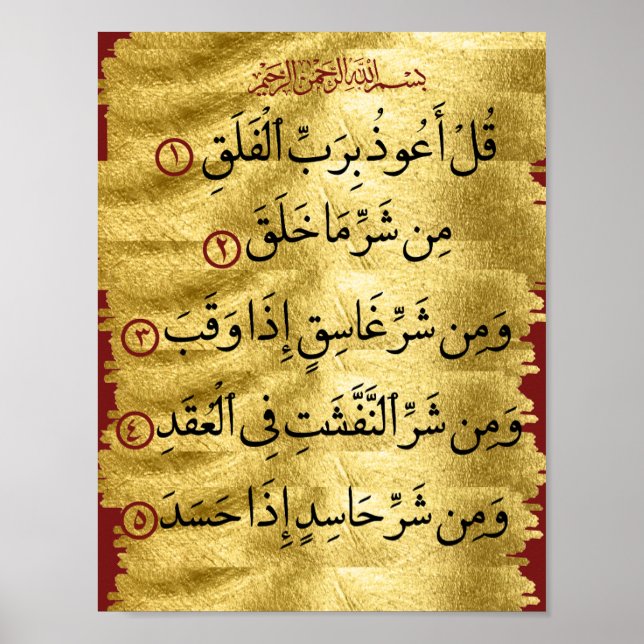 بسم الله الرحمن الرحيم
قُلْ أَعُوذُ بِرَبِّ ٱلْفَلَقِ ١
مِن شَرِّ مَا خَلَقَ ٢
وَمِن شَرِّ غَاسِقٍ إِذَا وَقَبَ ٣
وَمِن شَرِّ ٱلنَّفَّشَتِ فِى ٱلْعُقَدِ ٤
وَمِن شَرِّ حَاسِدٍ إِذَا حَسَدَ ٥